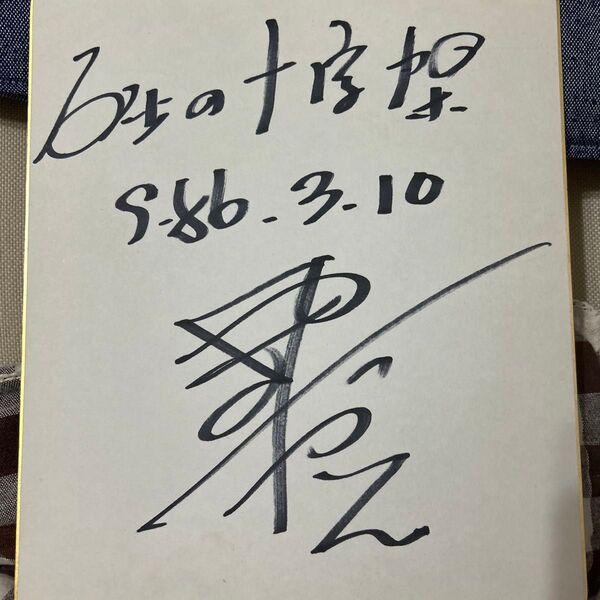 砂の十字架
S-86.3.10